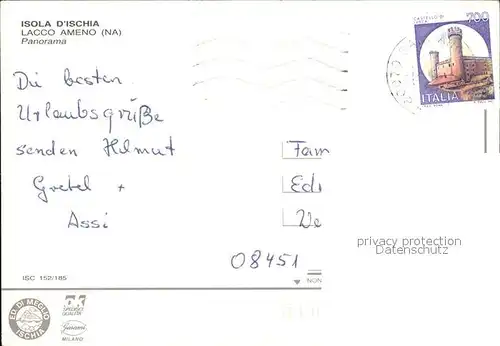 ISOLA D'ISCHIA
LACCO AMENO (NA)
Panorama
700
ITALIA
Die besten
Urlaubsgrüße
senden Helmut
Gretel +
Assi
Fam
Edi
We
08451
privacy protection
Datenschutz
ISC 152/185
NON
ED. DI MEGLIO
ISCHIA
MILANO